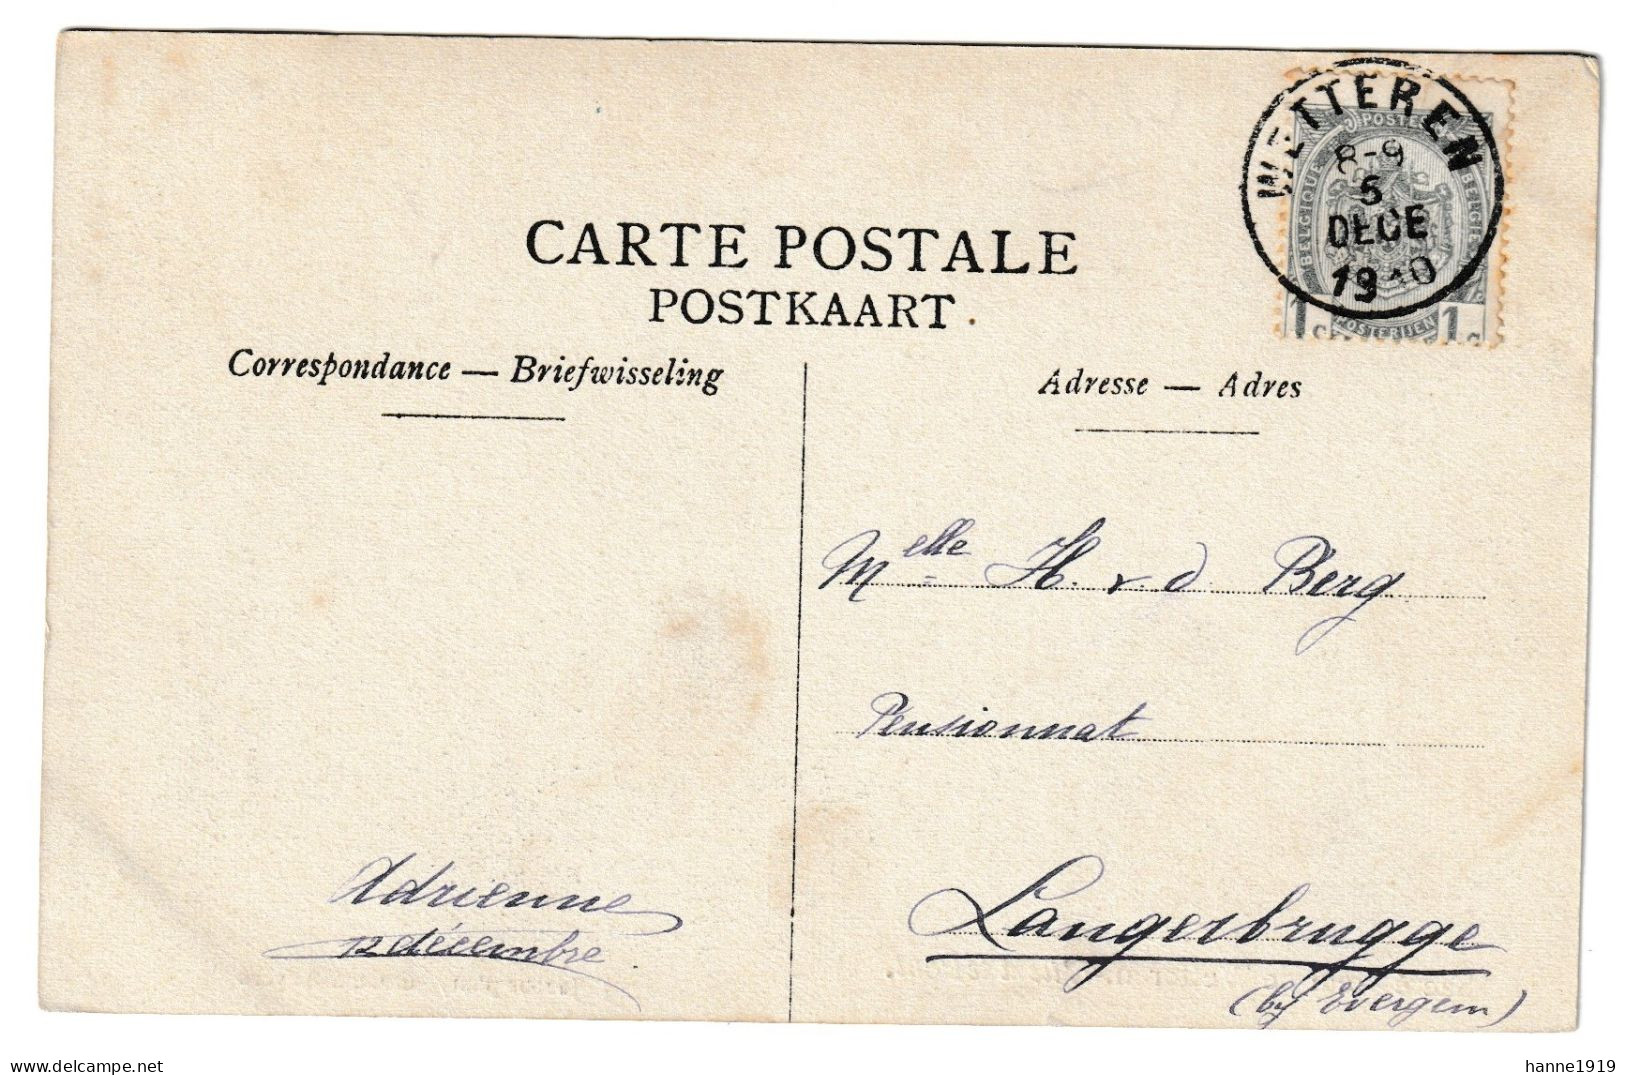 WETTEREN
8-9
5
DECE
1910
POSTES
BELGIQUE
BELGIË
POSTERIJEN
1
1
CARTE POSTALE
POSTKAART
Correspondance — Briefwisseling
Adresse — Adres
Melle H. v. d. Berg
Pensionnat
Langerbrugge
(by Evergem)
Adrienne
12 décembre.
delcampe.net
hanne1919